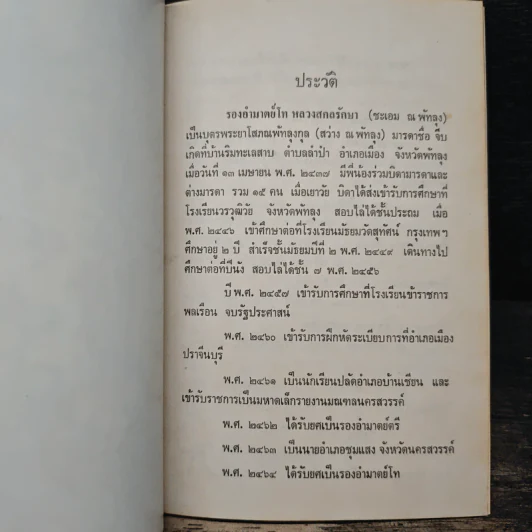 ประวัติ
รองอำมาตย์โท หลวงสกลรักษา (ชะเอม ณ พัทลุง)
เป็นบุตรพระยาโสภณพัทลุงกุล (สว่าง ณ พัทลุง) มารดาชื่อ จีบ
เกิดที่บ้านริมทะเลสาบ ตำบลลำปำ อำเภอเมือง จังหวัดพัทลุง
เมื่อวันที่ ๑๓ เมษายน พ.ศ. ๒๔๓๗ มีพี่น้องร่วมบิดามารดาและ
ต่างมารดา รวม ๑๕ คน เมื่อเยาว์วัย บิดาได้ส่งเข้ารับการศึกษาที่
โรงเรียนวรวุฒิวัย จังหวัดพัทลุง สอบไล่ได้ชั้นประถม เมื่อ
พ.ศ. ๒๔๔๖ เข้าศึกษาต่อที่โรงเรียนมัธยมวัดสุทัศน์ กรุงเทพฯ
ศึกษาอยู่ ๒ ปี สำเร็จชั้นมัธยมปีที่ ๒ พ.ศ. ๒๔๔๙ เดินทางไป
ศึกษาต่อที่ปีนัง สอบไล่ได้ชั้น ๗ พ.ศ. ๒๔๕๖
ปี พ.ศ. ๒๔๕๗ เข้ารับการศึกษาที่โรงเรียนข้าราชการ
พลเรือน จบรัฐประศาสน์
พ.ศ. ๒๔๖๐ เข้ารับการฝึกหัดระเบียบการที่อำเภอเมือง
ปราจีนบุรี
พ.ศ. ๒๔๖๑ เป็นนักเรียนปลัดอำเภอบ้านเชียน และ
เข้ารับราชการเป็นมหาดเล็กรายงานมณฑลนครสวรรค์
พ.ศ. ๒๔๖๒ ได้รับยศเป็นรองอำมาตย์ตรี
พ.ศ. ๒๔๖๓ เป็นนายอำเภอชุมแสง จังหวัดนครสวรรค์
พ.ศ. ๒๔๖๔ ได้รับยศเป็นรองอำมาตย์โท